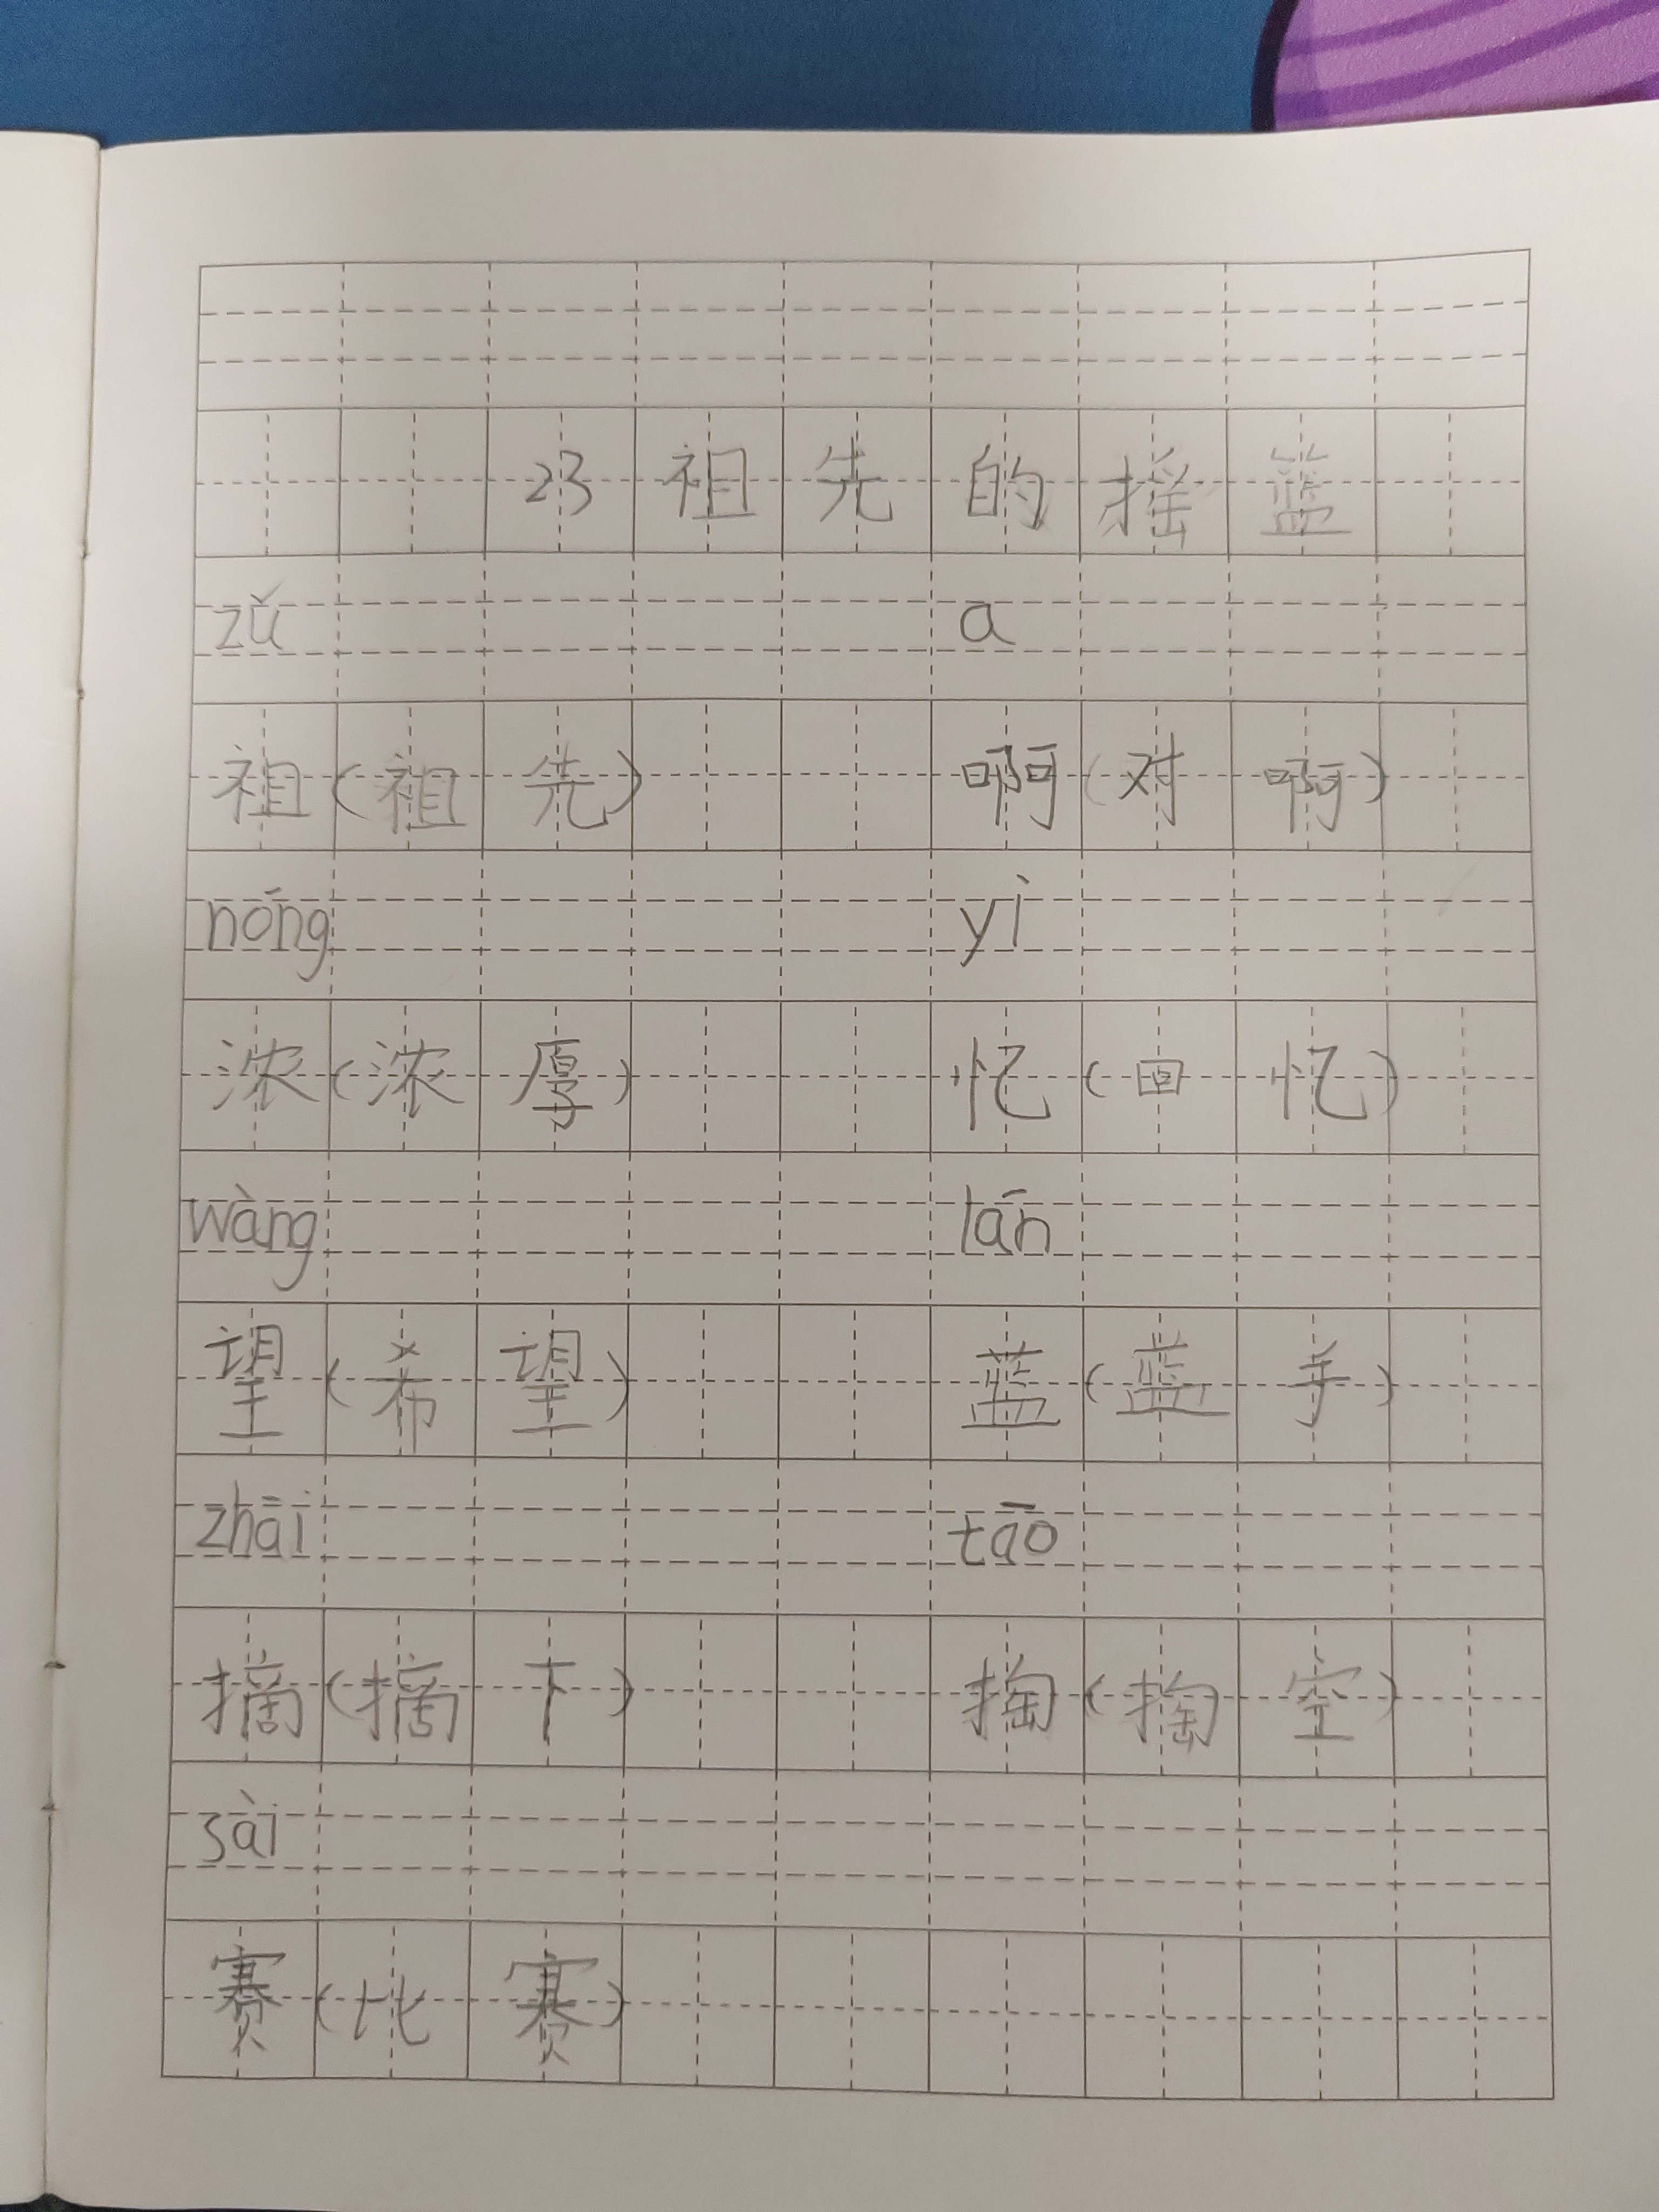 23祖先的摇篮
zǔ a
祖(祖先) 啊(对啊)
nóng yì
浓(浓厚) 忆(回忆)
wàng lán
望(希望) 蓝(蓝手)
zhāi tāo
摘(摘下) 掏(掏空)
sài
赛(比赛)